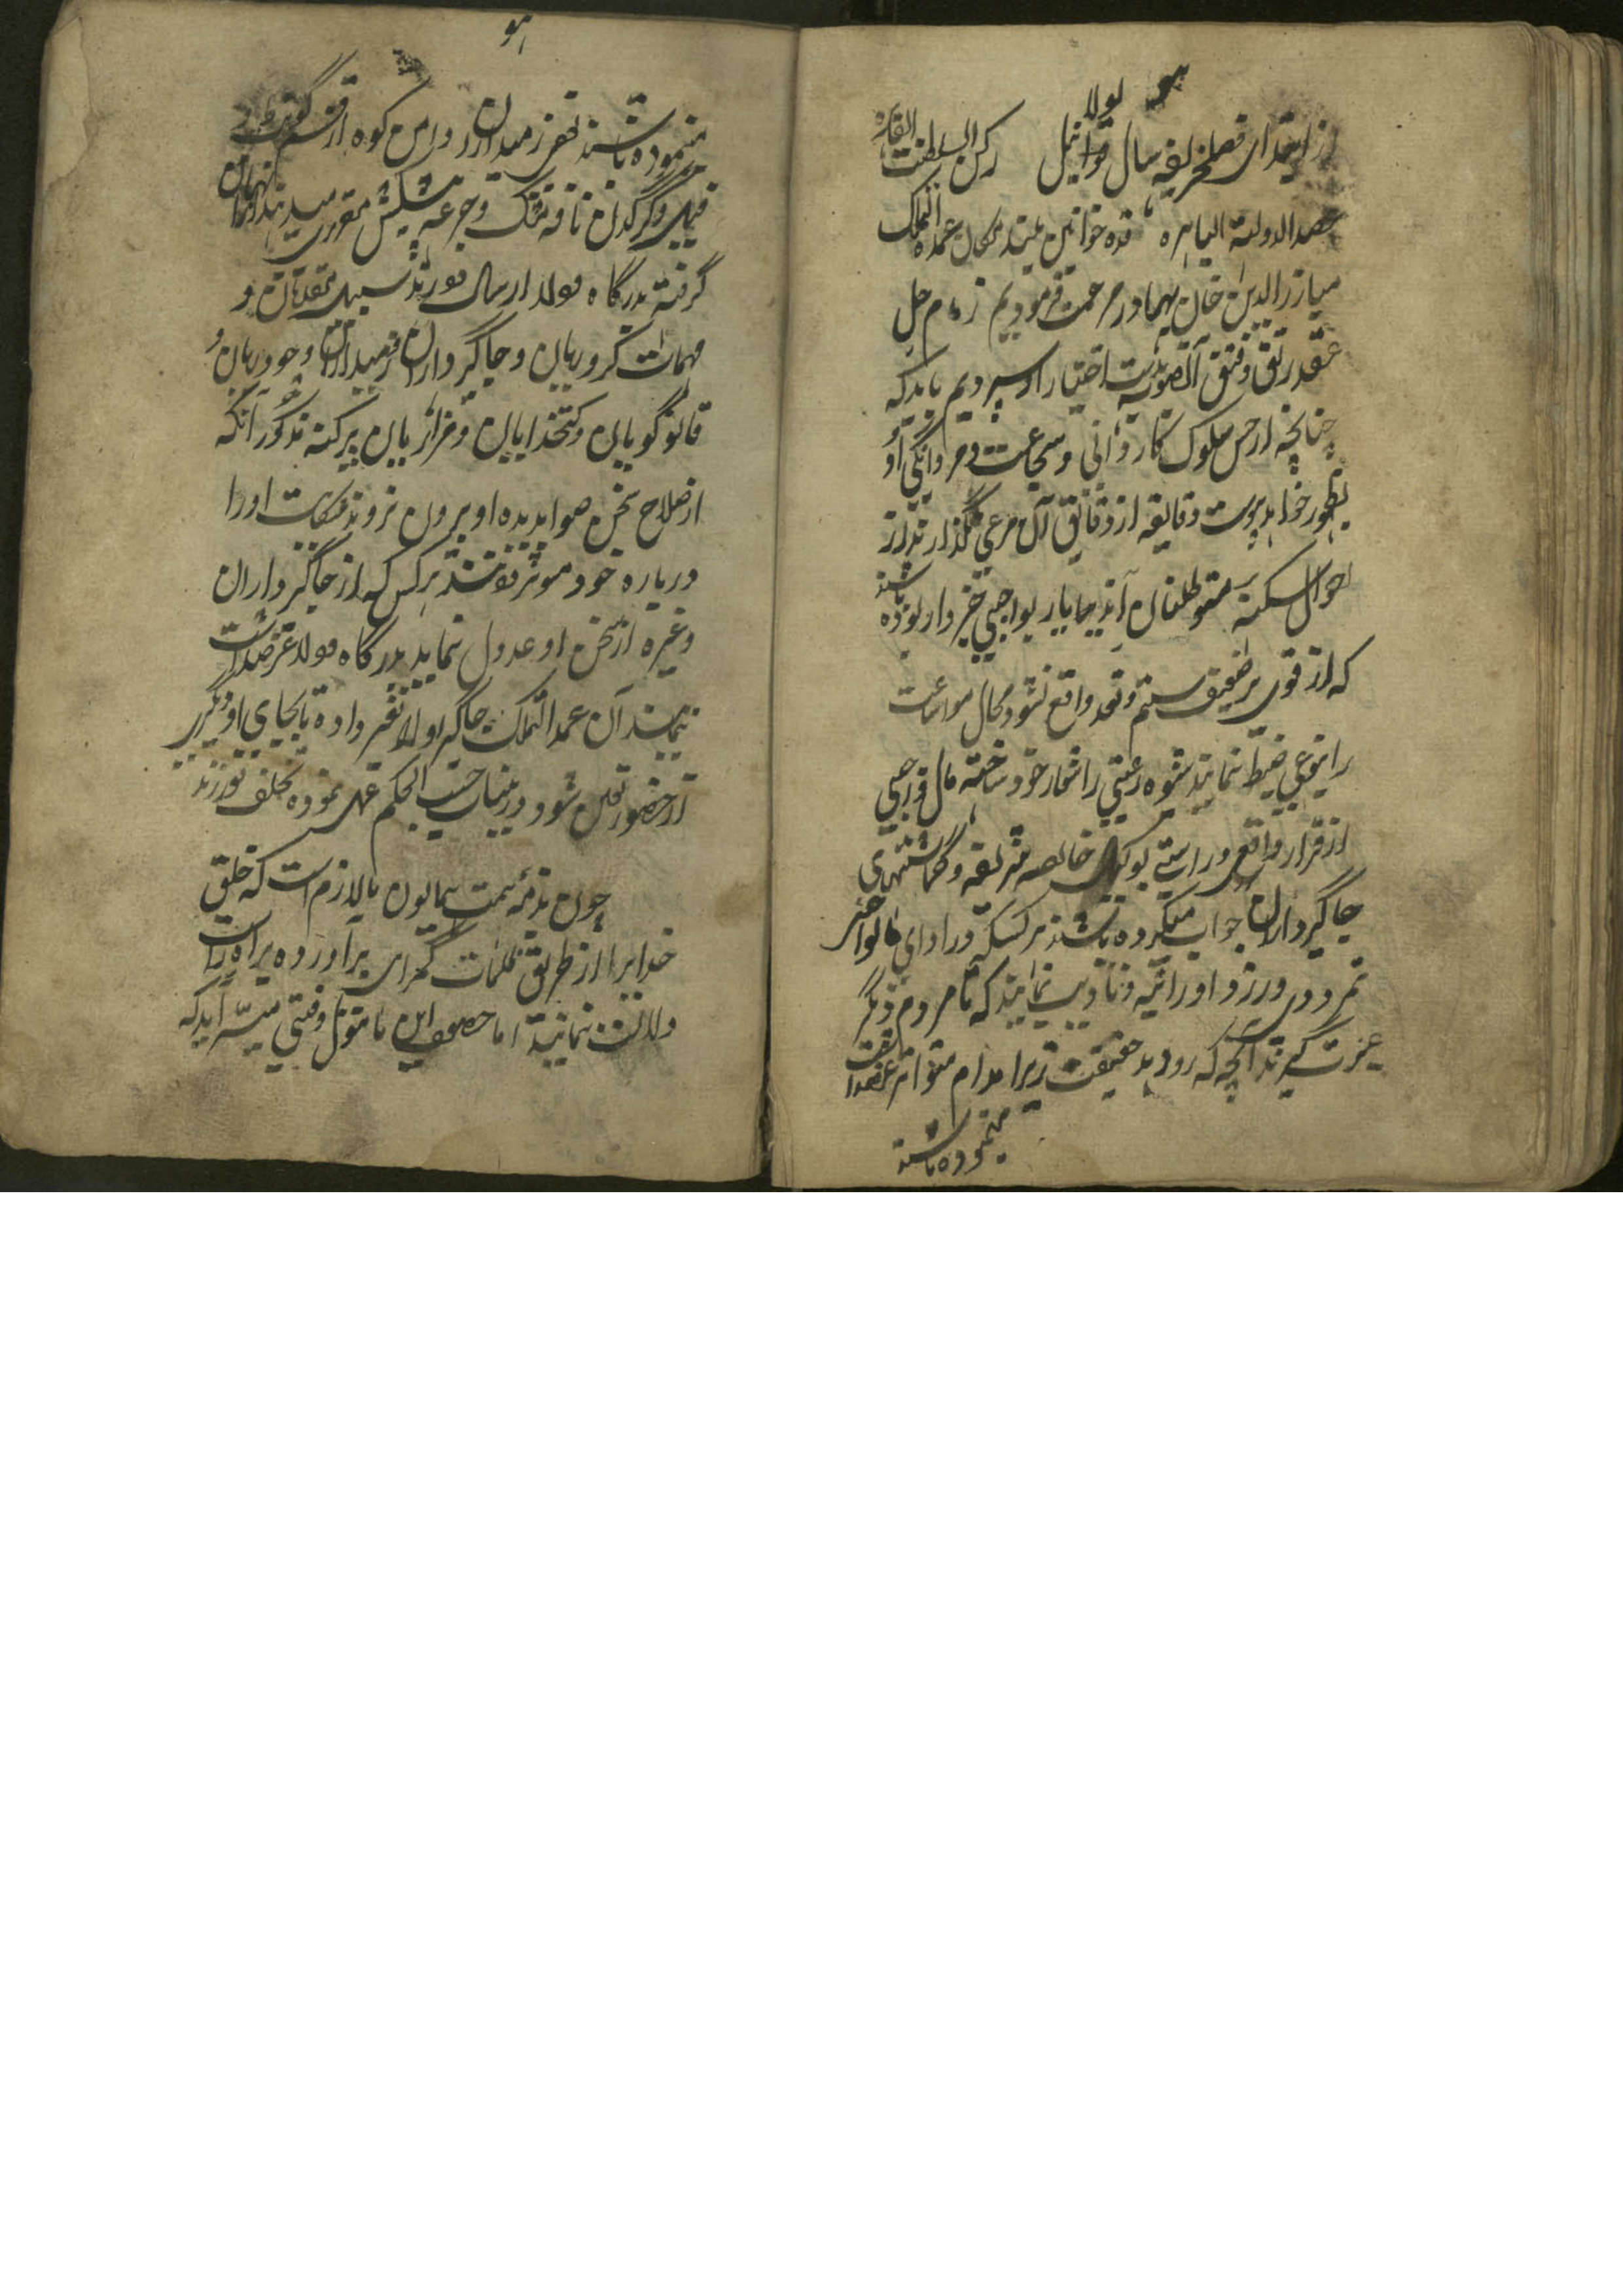 هو
از ابتدای فصل خریف سال قوائیل رکن السلطنت القاهره
عضد الدولة الباهره قدوه خوانین بلند مکان عمدة الملک
مبارزالدین خان بهادر مرحمت فرمودیم زمام حل
عقد رتق و فتق آنصوبه بدست اختیار او سپردیم باید که
چنانچه از حسن سلوک کاردانی و شجاعت و مردانگی او
بظهور خواهد پیوست دقایقه از دقایق آن مرعی نگذارند از
احوال سکنه متوطنان آندیار بواجبی خبردار بوده باشند
که از قوی بر ضعیف ستم و تعدی واقع نشود محال
را بنوعی ضبط نمایند شیوه رعیتی را شعار خود ساخته مال واجبی
از قرار واقع و راستی خالصه شریفه و گماشتهای
جاگیرداران جواب میکرده باشند هر کسیکه در ادای مالواجب
تمردی ورزد او را تنبیه و تادیب نمایند که تا مردم دیگر
عبرت گیرند آنچه که رو دهد حقیقت زیرا مدام متواتر عرضداشت
مینموده باشند
هو
مینموده باشند زمیندارن دامن کوه از قسم
فیل و گرگدن نافه مشک و جرعه پیشکش مقرری میدهند از آنها
گرفته بدرگاه مولا ارسال دورند سبیل متصدیان و
مهمات کروریان و جاگیرداران زمینداران و چودریان و
قانونگویان و کتخدایان و مزارعان پرکنه مذکور آنکه
از صلاح سخن صوابدیده او بیرون نروند شکایت او را
درباره خود موثر دونسند هرکس که از جاگیرداران
وغیره از سخن او عدول نماید بدرگاه مولا عرضداشت
نمایند آن عمدة الملک جاگیر او را تغیر داده تا بجای او دیگری
از حضور تعین شود درینباب حسب الحکم عمل نموده تخلف نورزند
چون بذمه همت همایون ما لازم است که خلق
خدایرا از طریق ظلمات گمراهی برآورده براه راست
دلالت نمایند اما حصول این مامول وقتی میسر آید که